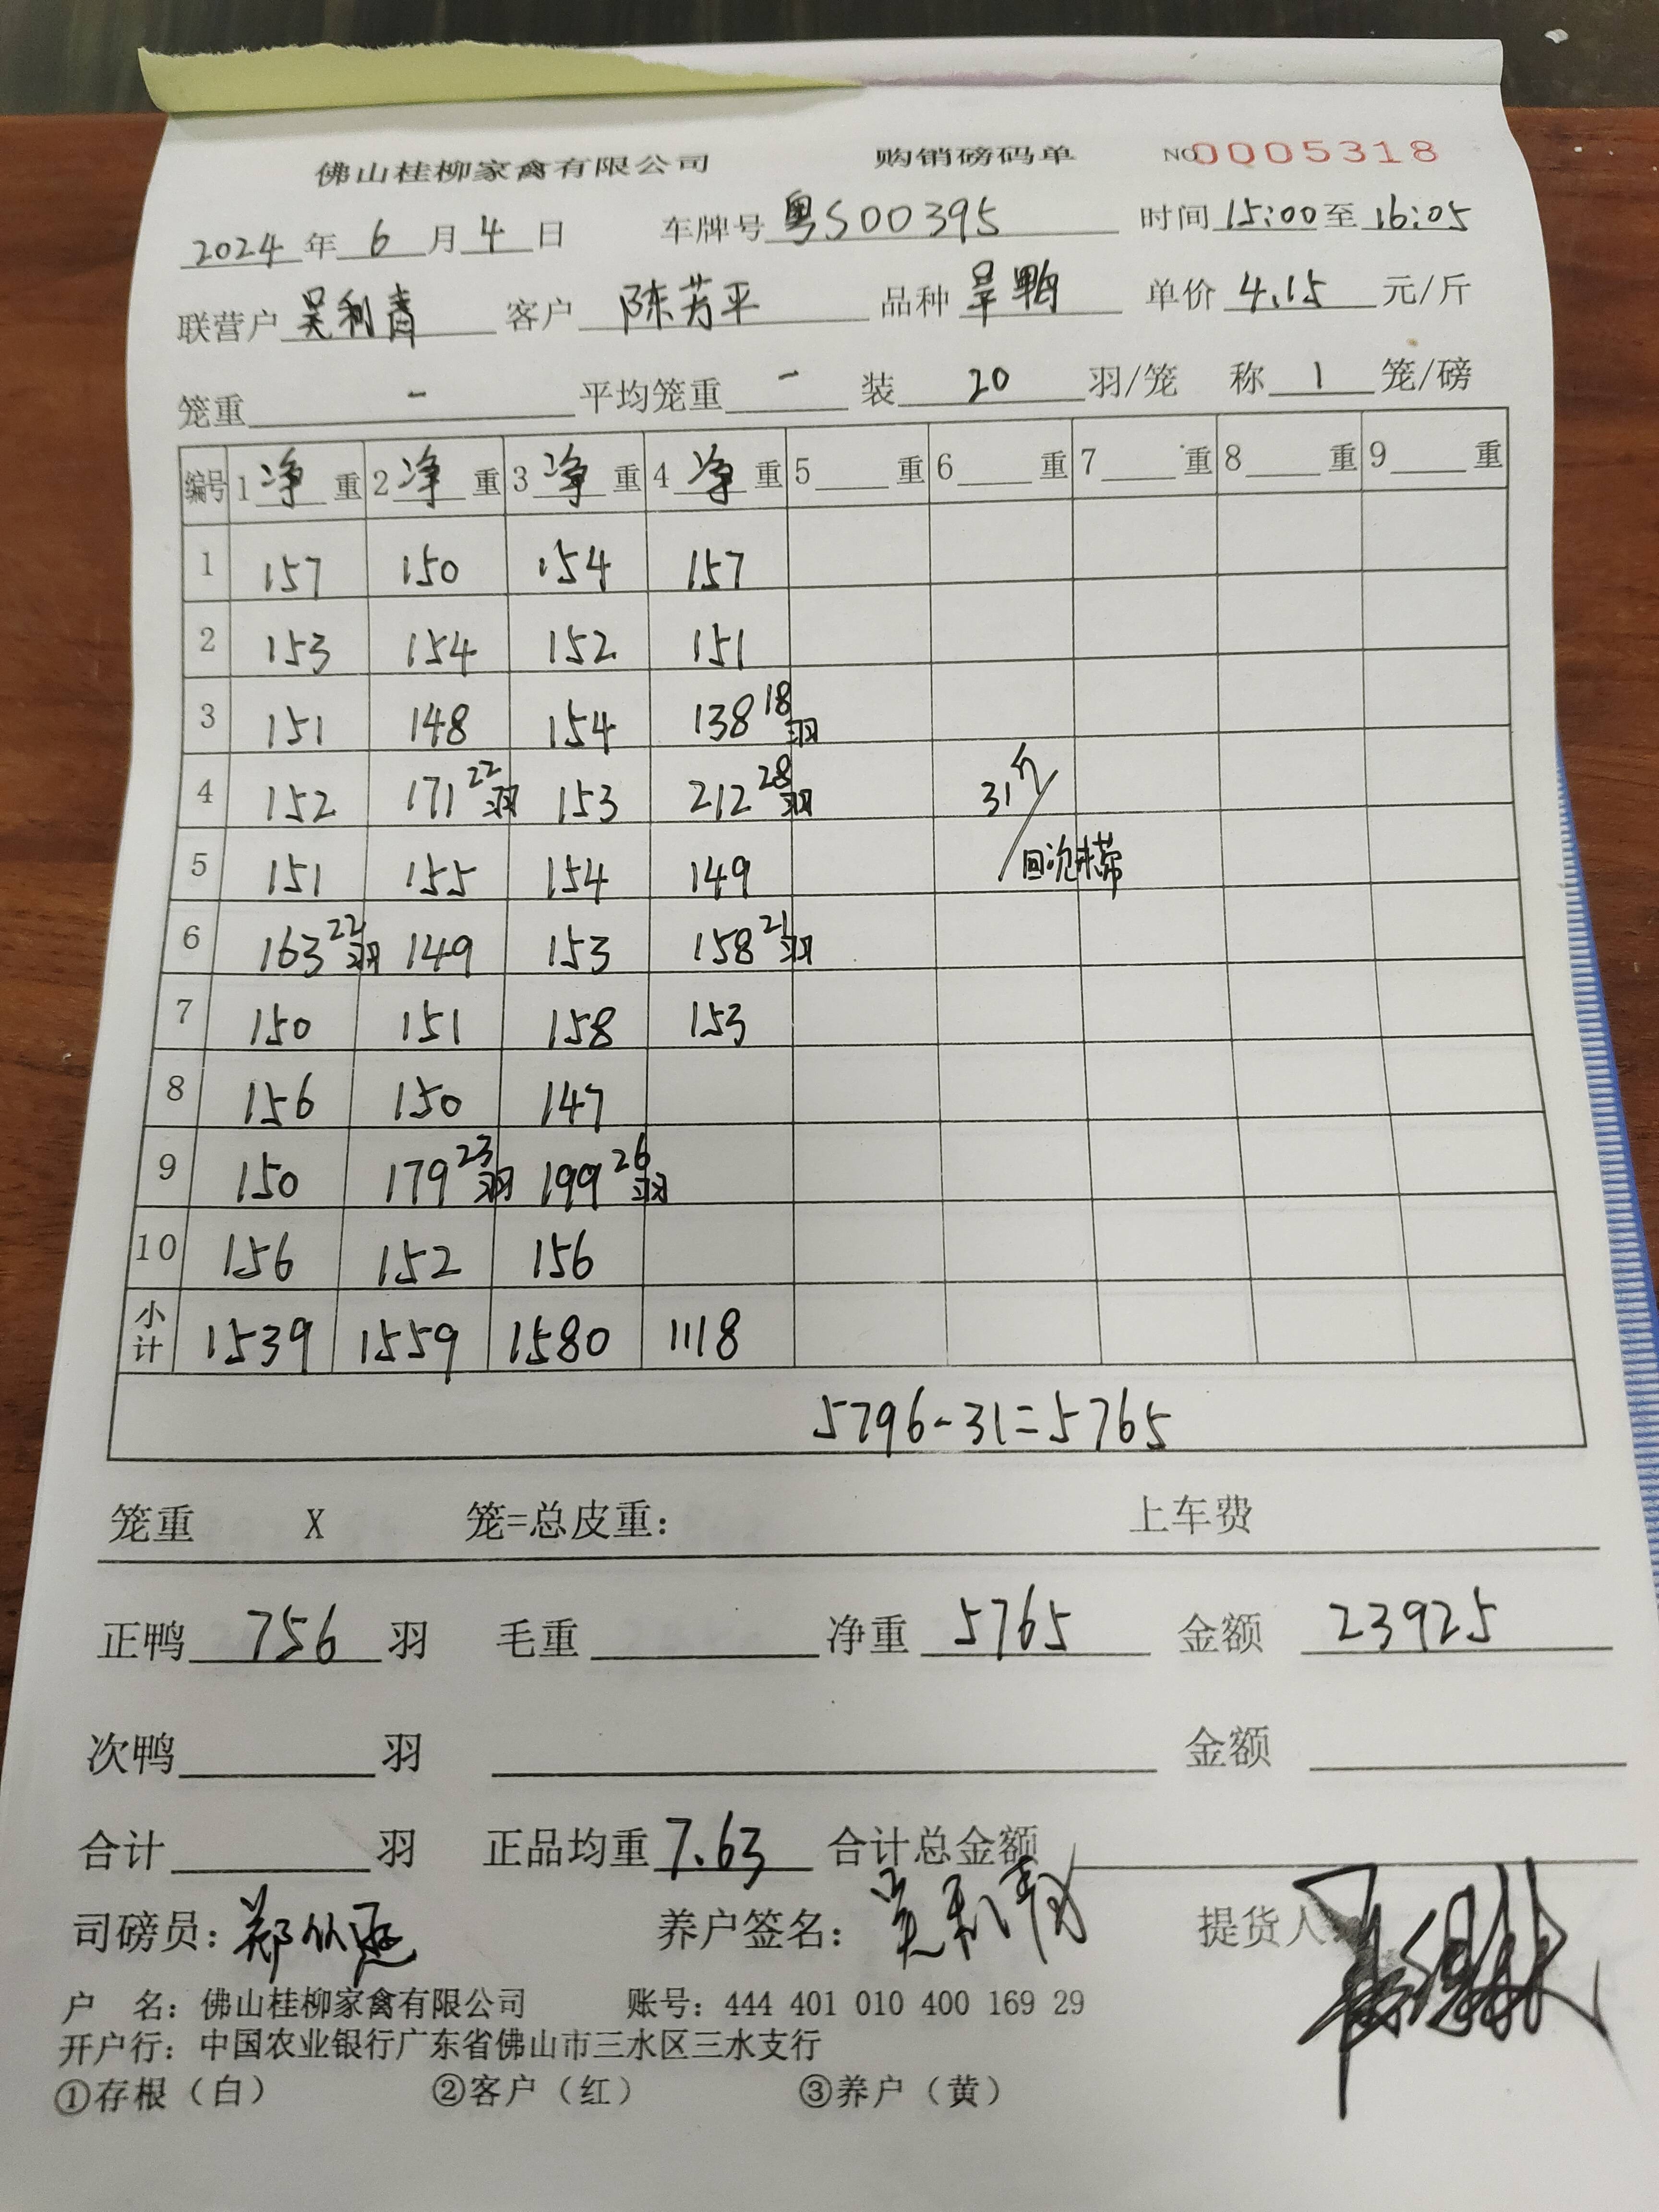 佛山桂柳家禽有限公司 购销磅码单 NO 0005318
2024年6月4日 车牌号 粤S00395 时间 15:00至16:05
联营户 吴利青 客户 陈芳平 品种 旱鸭 单价 4.15 元/斤
笼重 - 平均笼重 - 装 20 羽/笼 称 1 笼/磅
编号 1 净 重 2 净 重 3 净 重 4 净 重 5 重 6 重 7 重 8 重 9 重
1 157 150 154 157
2 153 154 152 151
3 151 148 154 138 18羽
4 152 171 22羽 153 212 28羽 31斤
5 151 155 154 149 回沧
6 163 22羽 149 153 158 21羽
7 150 151 158 153
8 156 150 147
9 150 179 23羽 199 26羽
10 156 152 156
小计 1539 1559 1580 1118
5796-31=5765
笼重 X 笼=总皮重: 上车费
正鸭 756 羽 毛重 净重 5765 金额 23925
次鸭 羽 金额
合计 羽 正品均重 7.63 合计总金额
司磅员: 郑 养户签名: 吴利青 提货人:
户 名: 佛山桂柳家禽有限公司 账号: 444 401 010 400 169 29
开户行: 中国农业银行广东省佛山市三水区三水支行
①存根(白) ②客户(红) ③养户(黄)